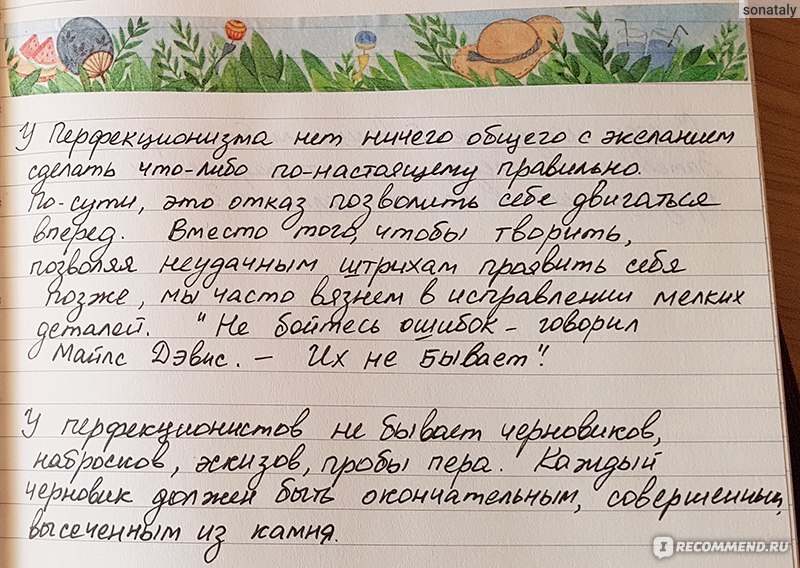 sonataly
У Перфекционизма нет ничего общего с желанием
сделать что-либо по-настоящему правильно.
По-сути, это отказ позволить себе двигаться
вперед. Вместо того, чтобы творить,
позволяя неудачным штрихам проявить себя
позже, мы часто вязнем в исправлении мелких
деталей. "Не бойтесь ошибок - говорил
Майлс Дэвис. - Их не бывает"!
У перфекционистов не бывает черновиков,
набросков, эскизов, пробы пера. Каждый
черновик должен быть окончательным, совершенным,
высеченным из камня.
IRECOMMEND.RU